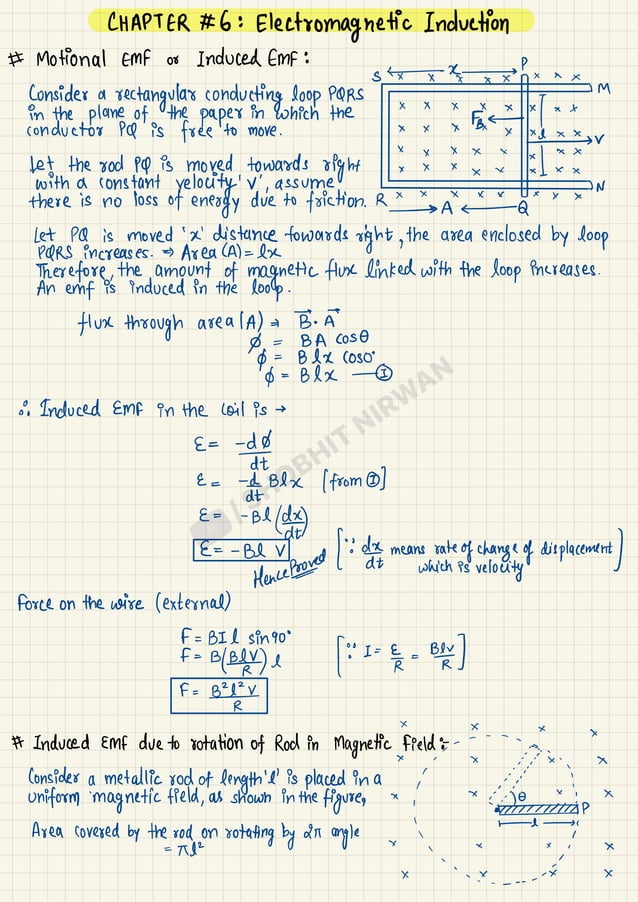 CHAPTER #6: Electromagnetic Induction
# Motional EMF or Induced EMF:
Consider a rectangular conducting loop PQRS
in the plane of the paper in which the
conductor PQ is free to move.
Let the rod PQ is moved towards right
with a constant velocity 'v', assume
there is no loss of energy due to friction.
S x P
M
FB l V
N
R A Q
Let PQ is moved 'x' distance towards right, the area enclosed by loop
PQRS increases. ⇒ Area (A) = lx
Therefore, the amount of magnetic flux linked with the loop increases.
An emf is induced in the loop.
flux through area (A) ⇒ B⃗. A⃗
ϕ = BA cosθ
ϕ = Blx cos0°
ϕ = Blx —Ⓘ
∴ Induced EMF in the coil is →
ε = -dϕ/dt
ε = -d/dt Blx [from Ⓘ]
ε = -Bl(dx/dt)
ε = -Bl V [∵ dx/dt means rate of change of displacement which is velocity]
Hence Proved
/ SHOBHIT NIRWAN
Force on the wire (external)
F = BIl sin90°
F = B(BlV/R) l [∵ I = ε/R = Blv/R]
F = B²l²V/R
# Induced EMF due to rotation of Rod in Magnetic field:-
Consider a metallic rod of length 'l' is placed in a
uniform magnetic field, as shown in the figure,
θ P
l
Area covered by the rod on rotating by 2π angle
= πl²